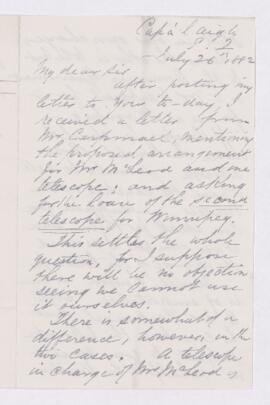 Cap à l'Aigle
P. Q.
July 26th 1882
My dear Sir
After posting my
letter to you to-day, I
received a letter from
Mr. Carpmael, mentioning
the proposed arrangement
for Mr McLeod and one
telescope: and asking
for the loan of the second
telescope for Winnipeg.
This settles the whole
question, for I suppose
there will be no objection
seeing we cannot use
it ourselves.
There is somewhat of a
difference, however, in the
two cases. A telescope
in charge of Mr McLeod is